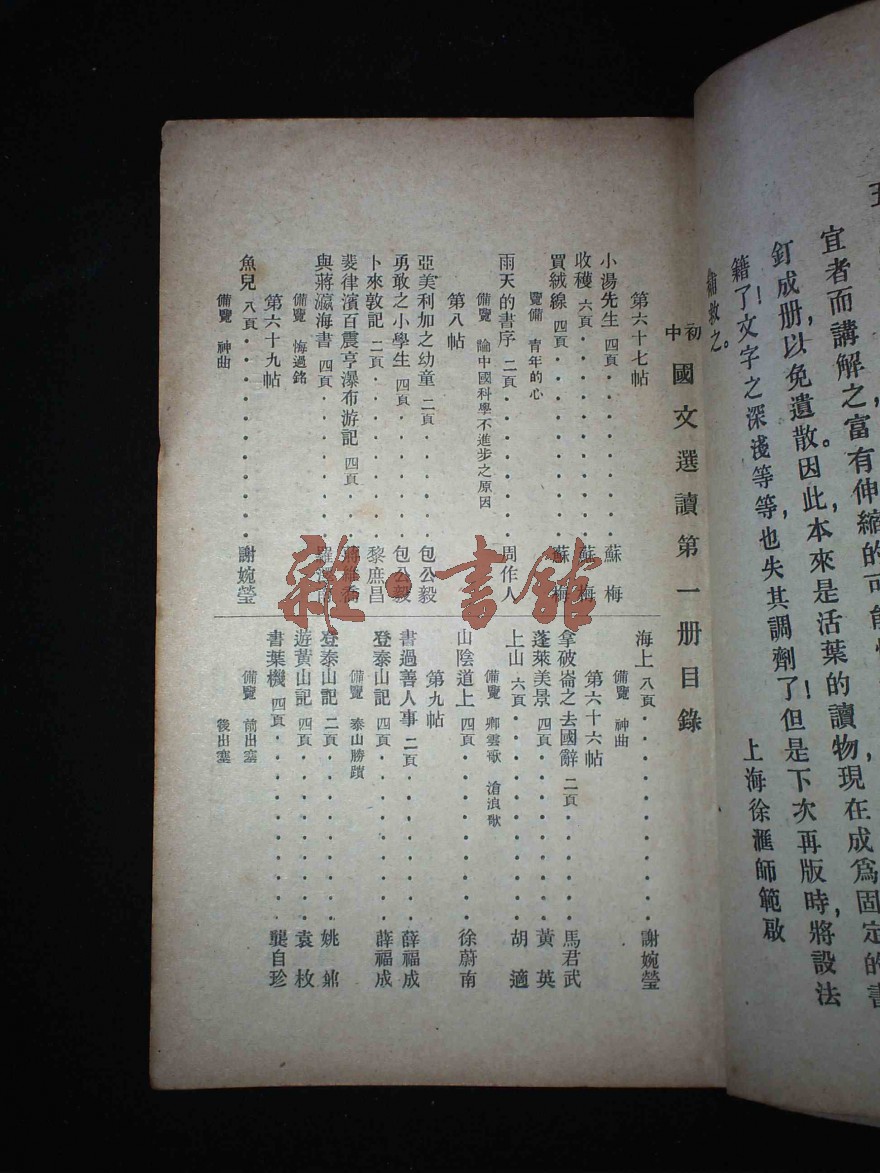 宜者而講解之富有伸縮的可能
釘成册，以免遺散。因此，本來是活葉的讀物現在成爲固定的書
籍了！文字之深淺等等，也失其調劑了！但是下次再版時，將設法
補救之。
上海徐滙師範啟
初中國文選讀第一册目錄
第六十七帖
小湯先生 四頁 蘇梅
收穫 六頁 蘇梅
買絨線 四頁 蘇梅
覽備 青年的心
雨天的書序 二頁 周作人
備覽 論中國科學不進步之原因
第八帖
亞美利加之幼童 二頁 包公毅
勇敢之小學生 四頁 包公毅
卜來敦記 二頁 黎庶昌
斐律濱百震亨瀑布游記 四頁 蔣維喬
與蔣瀛海書 四頁 羅澤南
備覽 悔過銘
第六十九帖
魚兒 八頁 謝婉瑩
備覽 神曲
海上 八頁 謝婉瑩
備覽 神曲
第六十六帖
拿破崙之去國辭 二頁 馬君武
蓬萊美景 四頁 黃英
上山 六頁 胡適
備覽 卿雲歌 滄浪歌
山陰道上 四頁 徐蔚南
第九帖
書過善人事 二頁 薛福成
登泰山記 四頁 薛福成
備覽 泰山勝蹟
登泰山記 二頁 姚鼐
遊黃山記 四頁 袁枚
書葉機 四頁 龔自珍
備覽 前出塞
後出塞
雜·書館